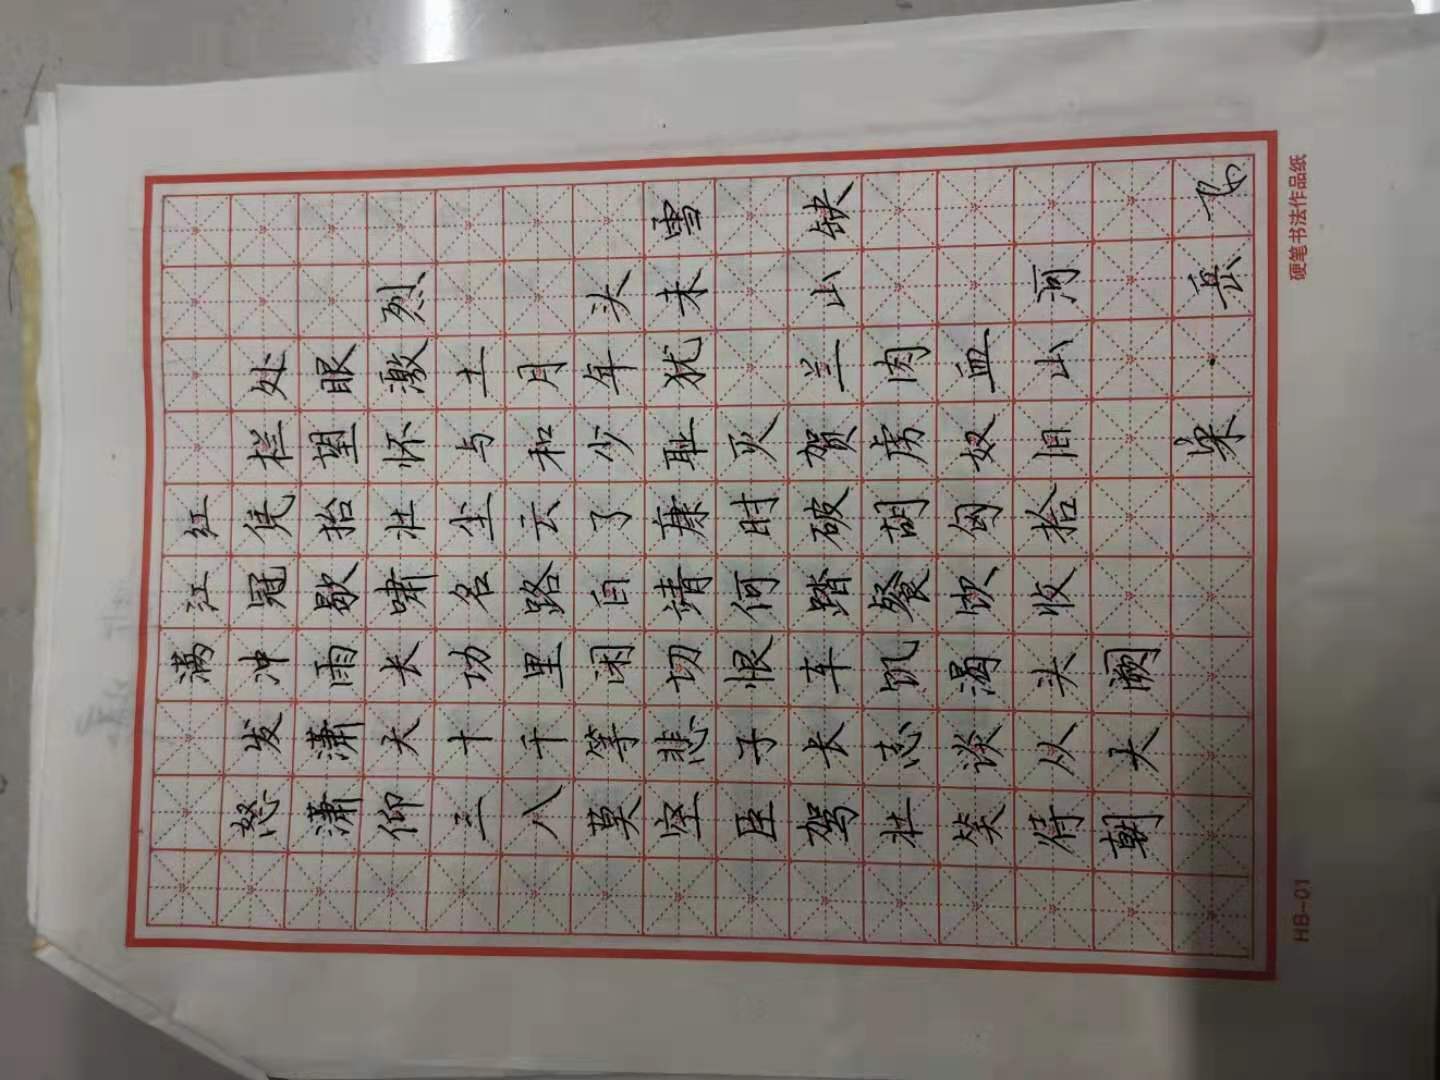 满江红
怒发冲冠凭栏处
潇潇雨歇抬望眼
仰天长啸壮怀激烈
三十功名尘与土
八千里路云和月
莫等闲白了少年头
空悲切靖康耻犹未雪
臣子恨何时灭
驾长车踏破贺兰山缺
壮志饥餐胡虏肉
笑谈渴饮匈奴血
待从头收拾旧山河
朝天阙
宋·岳飞
HB-01 硬笔书法作品纸